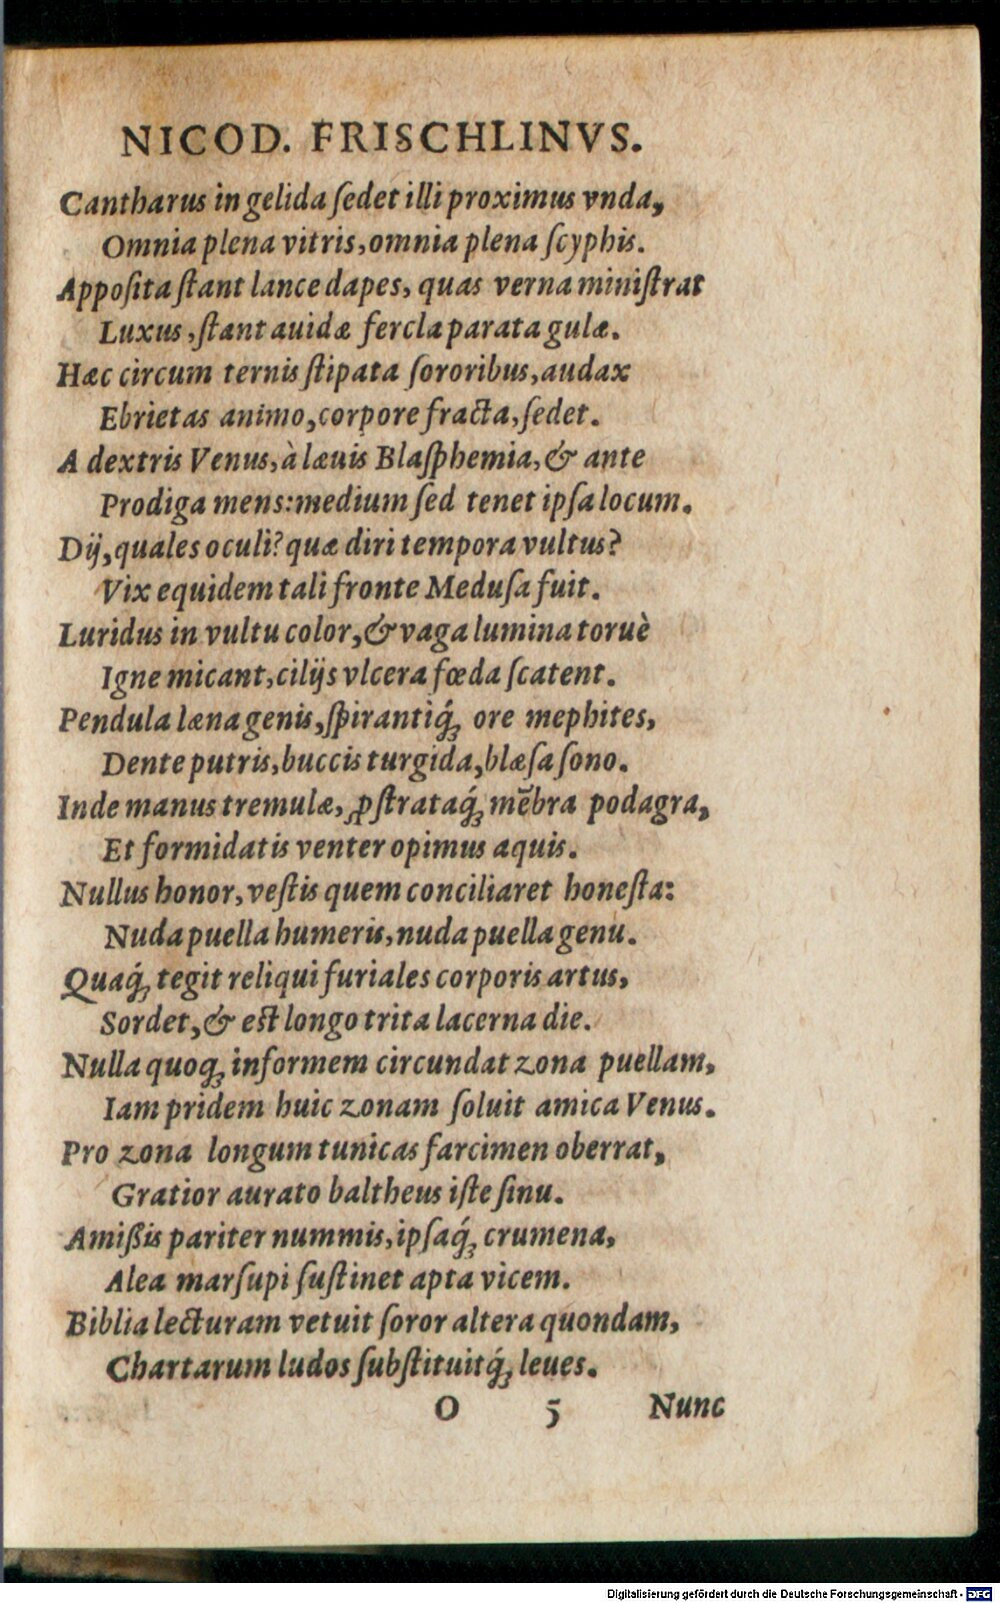 NICOD. FRISCHLINVS.
Cantharus in gelida ſedet illi proximus vnda,
Omnia plena vitris, omnia plena ſcyphis.
Appoſita ſtant lance dapes, quas verna miniſtrat
Luxus, ſtant auidæ fercla parata gulæ.
Hæc circum ternis ſtipata ſororibus, audax
Ebrietas animo, corpore fracta, ſedet.
A dextris Venus, à læuis Blaſphemia, & ante
Prodiga mens: medium ſed tenet ipſa locum.
Dij, quales oculi? quæ diri tempora vultus?
Vix equidem tali fronte Meduſa fuit.
Luridus in vultu color, & vaga lumina toruè
Igne micant, cilijs vlcera fœda ſcatent.
Pendula læna genis, ſpirantiq́; ore mephites,
Dente putris, buccis turgida, blæſa ſono.
Inde manus tremulæ, ꝓſtrataq́; mẽbra podagra,
Et formidatis venter opimus aquis.
Nullus honor, veſtis quem conciliaret honeſta:
Nuda puella humeris, nuda puella genu.
Quaq́; tegit reliqui furiales corporis artus,
Sordet, & eſt longo trita lacerna die.
Nulla quoq; informem circundat zona puellam,
Iam pridem huic zonam ſoluit amica Venus.
Pro zona longum tunicas farcimen oberrat,
Gratior aurato baltheus iſte ſinu.
Amißis pariter nummis, ipſaq́; crumena,
Alea marſupi ſuſtinet apta vicem.
Biblia lecturam vetuit ſoror altera quondam,
Chartarum ludos ſubſtituitq́; leues.
O 5 Nunc
Digitalisierung gefördert durch die Deutsche Forschungsgemeinschaft - DFG